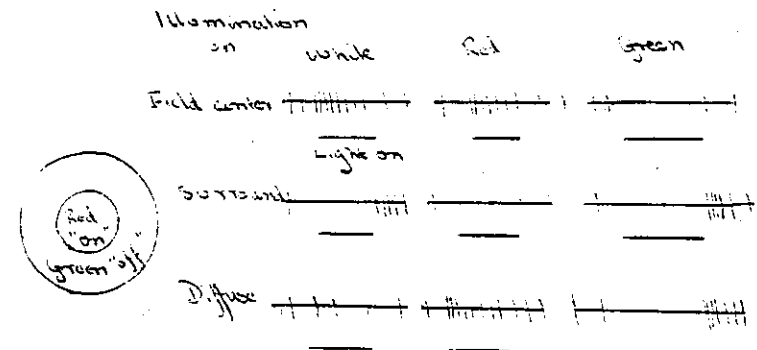 Illumination
on
White
Red
Green
Field center
Light on
Surround
Red
"on"
Green "off"
Diffuse